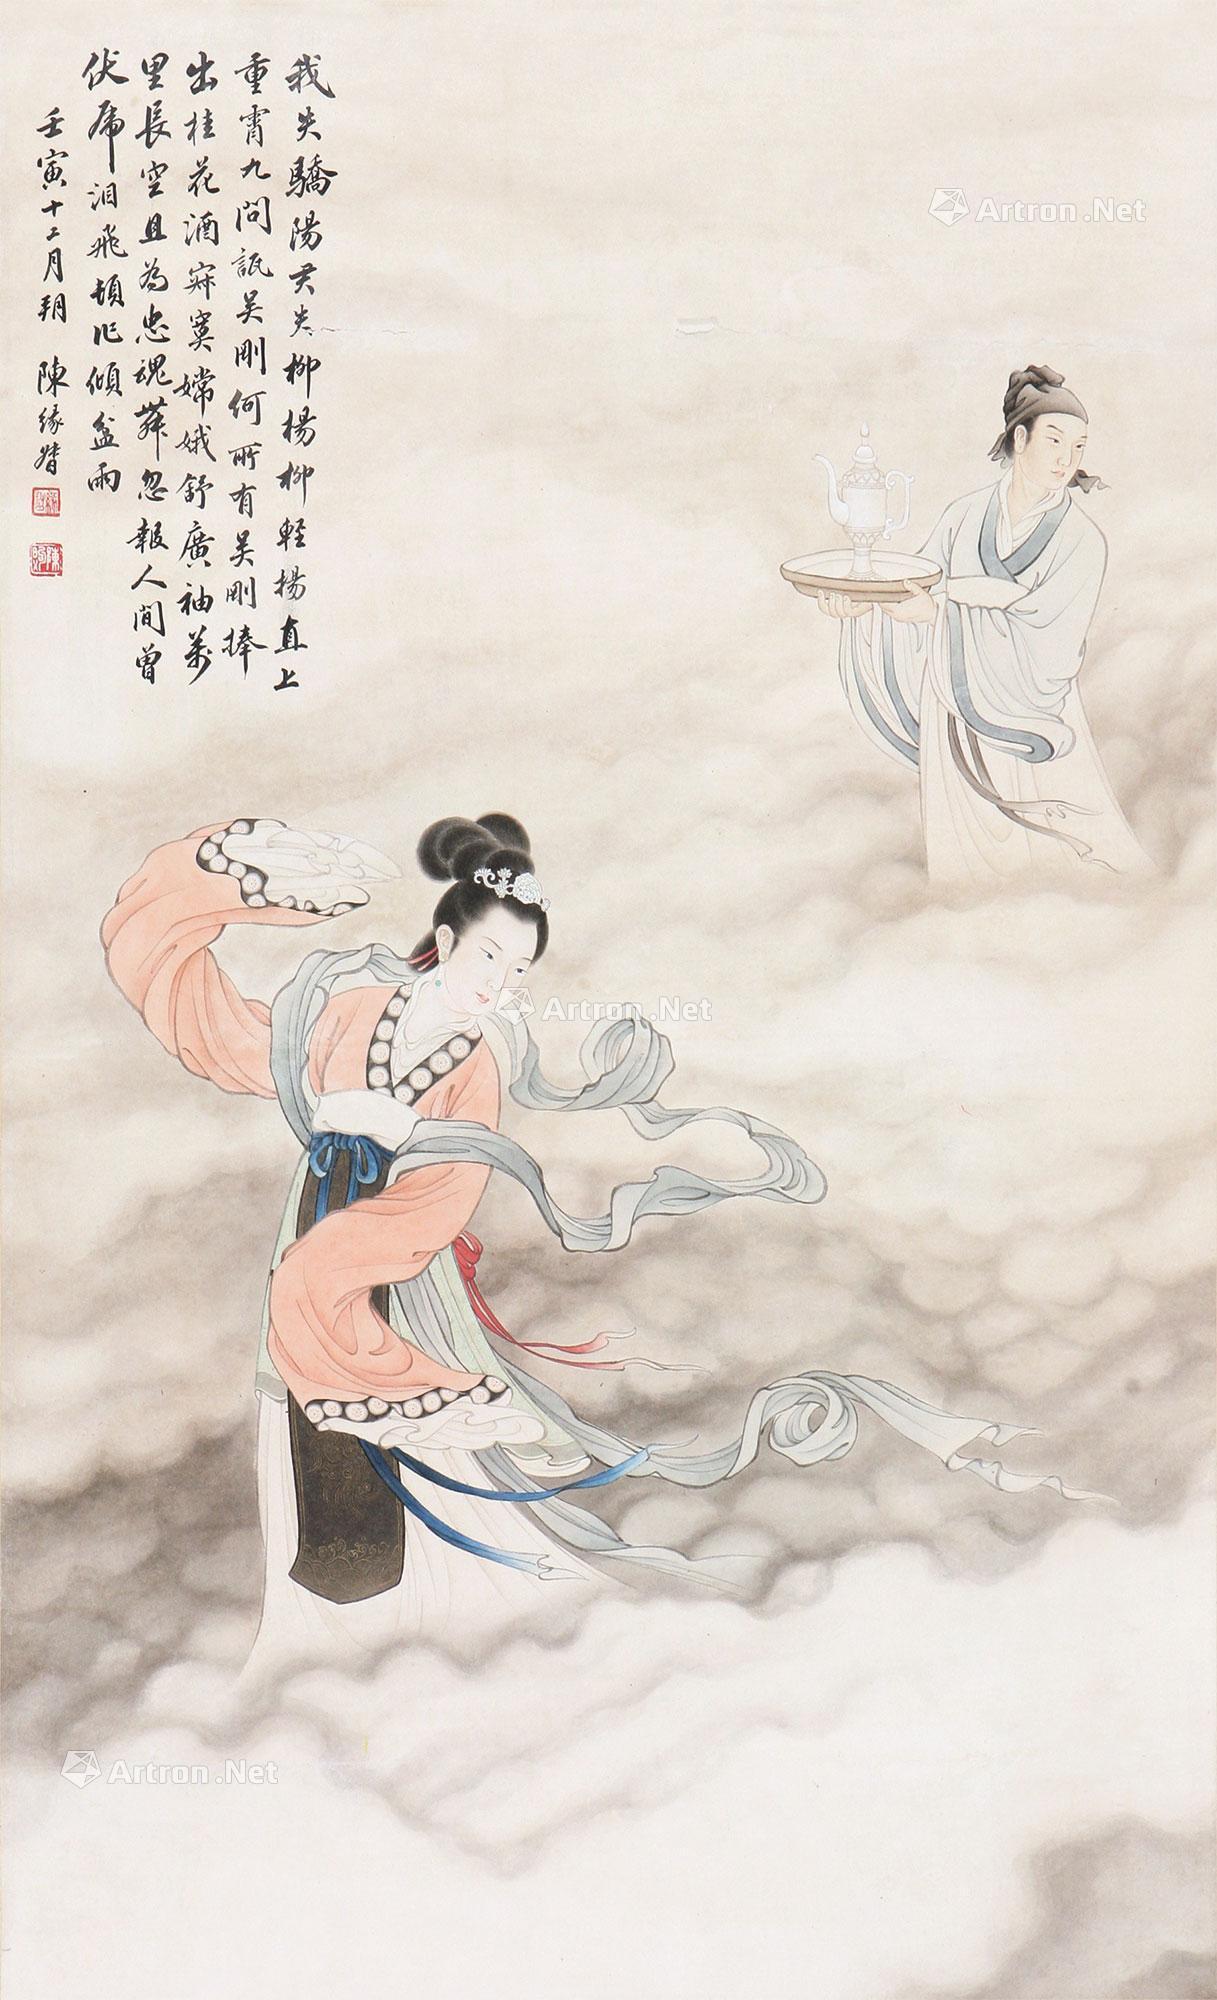 我失驕陽君失柳楊柳輕揚直上
重霄九問訊吳剛何所有吳剛捧
出桂花酒寂寞嫦娥舒廣袖萬
里長空且為忠魂舞忽報人間曾
伏虎淚飛頓作傾盆雨
壬寅十二月朔 陳緣督
Artron.Net
Artron.Net
Artron.Net